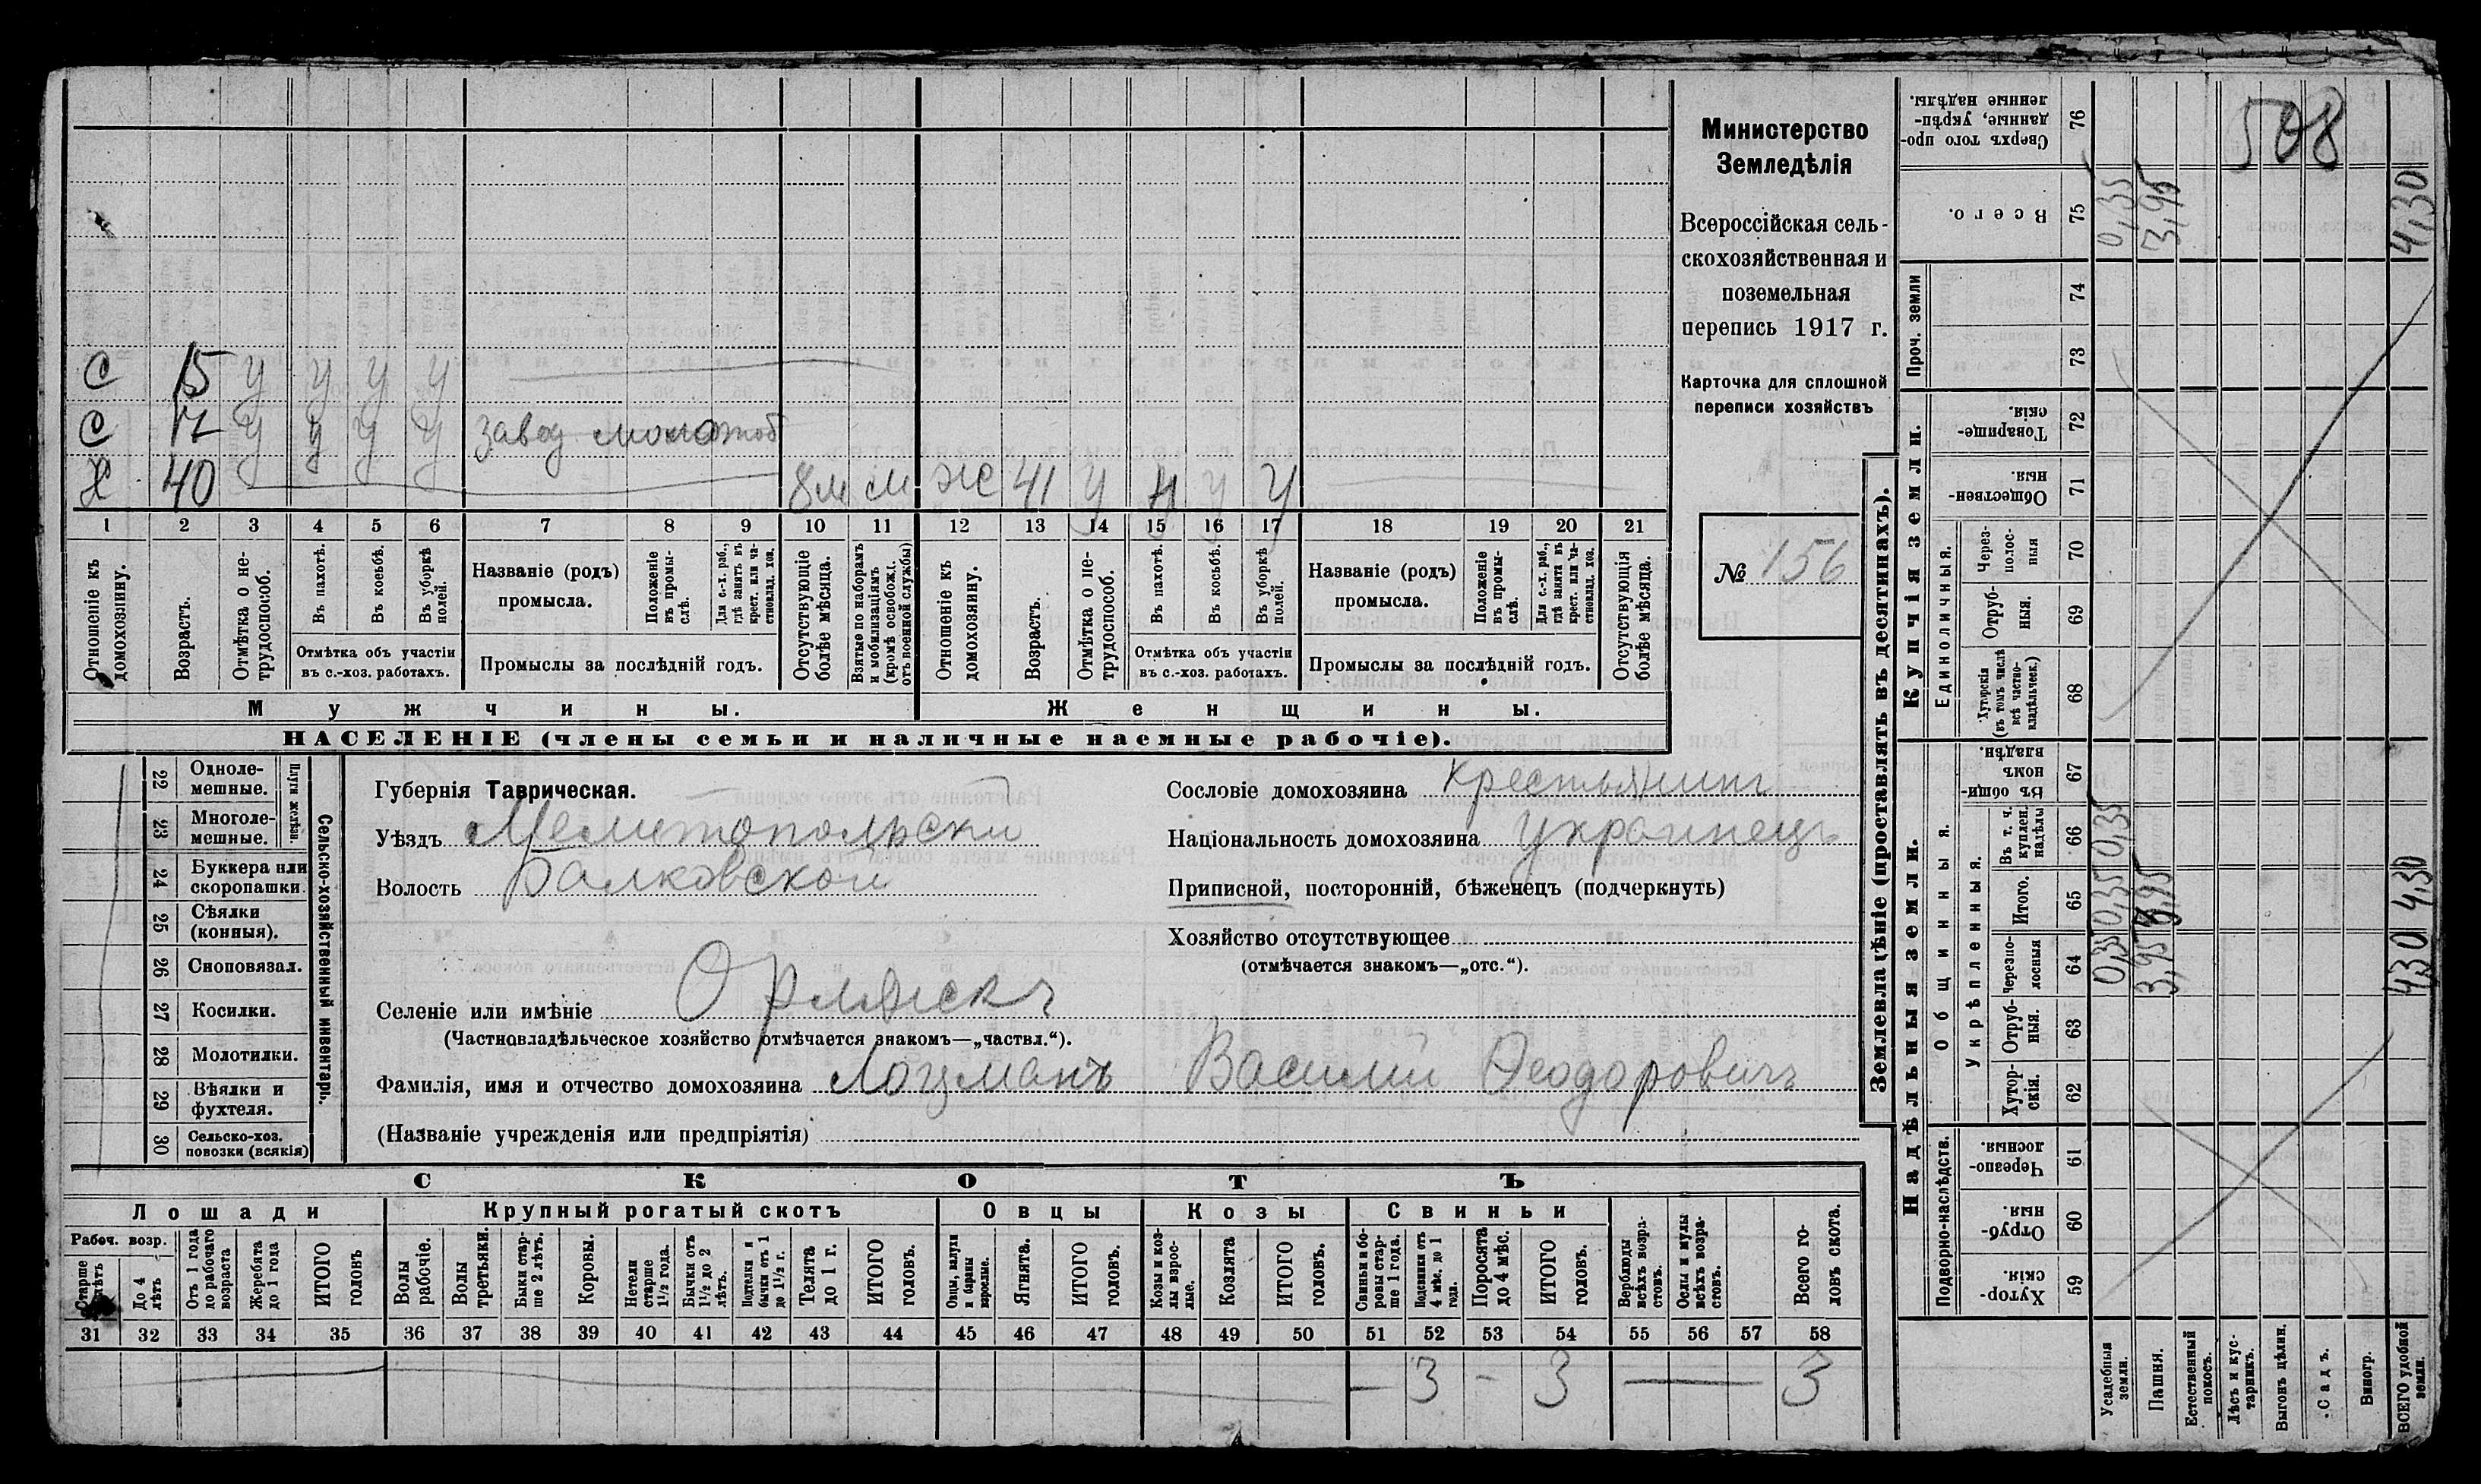 С 15 у у у у
С 17 у у у у завод молотоб
Х 40 8м м Ж 41 у н у у
1 2 3 4 5 6 7 8 9 10 11 12 13 14 15 16 17 18 19 20 21
Отношеніе къ домохозяину.
Возрастъ.
Отмѣтка о не-трудоспособ.
Въ пахотѣ.
Въ косьбѣ.
Въ уборкѣ полей.
Отмѣтка объ участіи
въ с.-хоз. работахъ.
Названіе (родъ)
промысла.
Положеніе въ промы-слѣ.
Для с.-х. раб., гдѣ занятъ въ крест. или ча-стновлад. хоз.
Промыслы за послѣдній годъ.
Отсутствующіе болѣе мѣсяца.
Взятые по наборамъ и мобилизаціямъ (кромѣ освобожд. отъ военной службы)
Отношеніе къ домохозяину.
Возрастъ.
Отмѣтка о не-трудоспособ.
Въ пахотѣ.
Въ косьбѣ.
Въ уборкѣ полей.
Отмѣтка объ участіи
въ с.-хоз. работахъ.
Названіе (родъ)
промысла.
Положеніе въ промы-слѣ.
Для с.-х. раб., гдѣ занята въ крест. или ча-стновлад. хоз.
Промыслы за послѣдній годъ.
Отсутствующія болѣе мѣсяца.
Мужчины.
Женщины.
НАСЕЛЕНІЕ (члены семьи и наличные наемные рабочіе).
Министерство
Земледѣлія
Всероссійская сель-
скохозяйственная и
поземельная
перепись 1917 г.
Карточка для сплошной
переписи хозяйствъ
№ 156
22 Одноле-
мешные.
23 Многоле-
мешные.
Плуги желѣзн.
24 Буккера или
скоропашки.
25 Сѣялки
(конныя).
26 Сноповязал.
27 Косилки.
28 Молотилки.
29 Вѣялки и
фухтеля.
30 Сельско-хоз.
повозки (всякія)
Сельско-хозяйственный инвентарь.
Губернія Таврическая.
Уѣздъ Мелитопольскій
Волость Балковской
Селеніе или имѣніе Орлянскъ
(Частновладѣльческое хозяйство отмѣчается знакомъ—„частвл.“).
Фамилія, имя и отчество домохозяина Лоцманъ Василій Ѳеодоровичъ
(Названіе учрежденія или предпріятія)
Сословіе домохозяина крестьянинъ
Національность домохозяина украинецъ
Приписной, посторонній, бѣженецъ (подчеркнуть)
Хозяйство отсутствующее
(отмѣчается знакомъ—„отс.“).
СКОТЪ
Лошади Крупный рогатый скотъ Овцы Козы Свиньи
Рабоч. возр.
Старше лѣтъ
До 4 лѣтъ
Отъ 1 года до рабочаго возраста
Жеребята до 1 года
ИТОГО головъ
Волы рабочіе.
Волы третьяки.
Быки стар-ше 2 лѣтъ.
Коровы.
Нетели старше 1½ года.
Бычки отъ 1½ до 2 лѣтъ.
Подтелки и бычки отъ 1 до 1½ г.
Телята до 1 г.
ИТОГО головъ.
Овцы, валухи и бараны взрослые.
Ягнята.
ИТОГО головъ.
Козы и коз-лы взрос-лые.
Козлята
ИТОГО головъ.
Свиньи и бо-ровы стар-ше 1 года.
Подсвинки отъ 4 мѣс. до 1 года.
Поросята до 4 мѣс.
ИТОГО головъ.
Верблюды всѣхъ возра-стовъ.
Ослы и мулы всѣхъ возра-стовъ.
Всего го-ловъ скота.
31 32 33 34 35 36 37 38 39 40 41 42 43 44 45 46 47 48 49 50 51 52 53 54 55 56 57 58
— 3 - 3 — 3
Землевладѣніе (проставлять въ десятинахъ).
508
76 Сверхъ того про-данные, укрѣп-ленные надѣлы.
75 Всего. 0,35 3,95 4,30
Проч. земли
74
73
Купчія земли.
72 Товарище-скія.
71 Обществен-ныя
Единоличныя.
70 Через-полос-ныя
69 Отруб-ныя.
68 Хуторскія (въ томъ числѣ всѣ частно-владѣльческ.)
Надѣльныя земли.
Общинныя.
67 Въ общи-номъ владѣн.
Укрѣпленныя.
66 Въ т. ч. куплен. надѣлы 0,35
65 Итого. 0,35 3,95 4,30
64 Черезпо-лосныя 0,35 3,95 4,30
63 Отруб-ныя.
62 Хутор-скія.
Подворно-наслѣдств.
61 Черезпо-лосныя
60 Отруб-ныя.
59 Хутор-скія.
Усадебныя земли.
Пашня.
Естественный покосъ.
Лѣсъ и кус-тарникъ.
Выгонъ цѣлин.
Садъ.
Виногр.
ВСЕГО удобной земли.